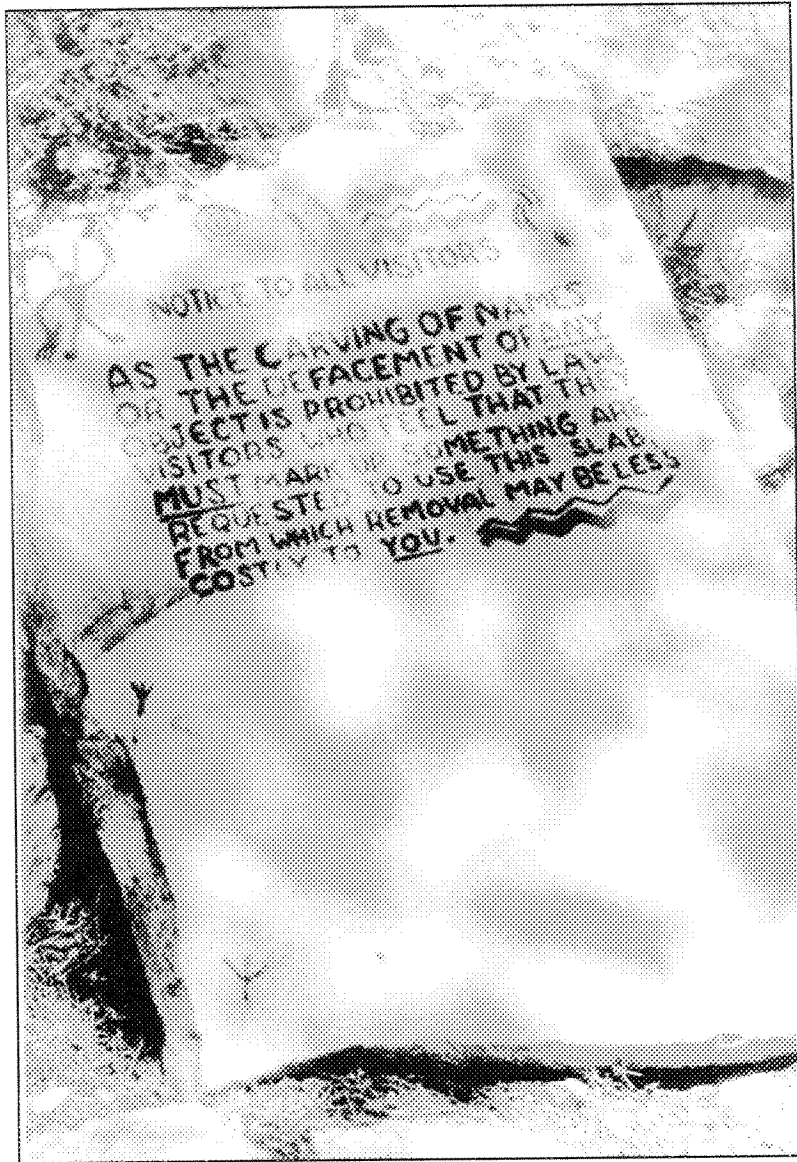 NOTICE TO ALL VISITORS
AS THE CARVING OF NAMES
OR THE DEFACEMENT OF ANY
OBJECT IS PROHIBITED BY LAW
VISITORS WHO FEEL THAT THEY
MUST MARK UP SOMETHING ARE
REQUESTED TO USE THIS SLAB
FROM WHICH REMOVAL MAY BE LESS
COSTLY TO YOU.